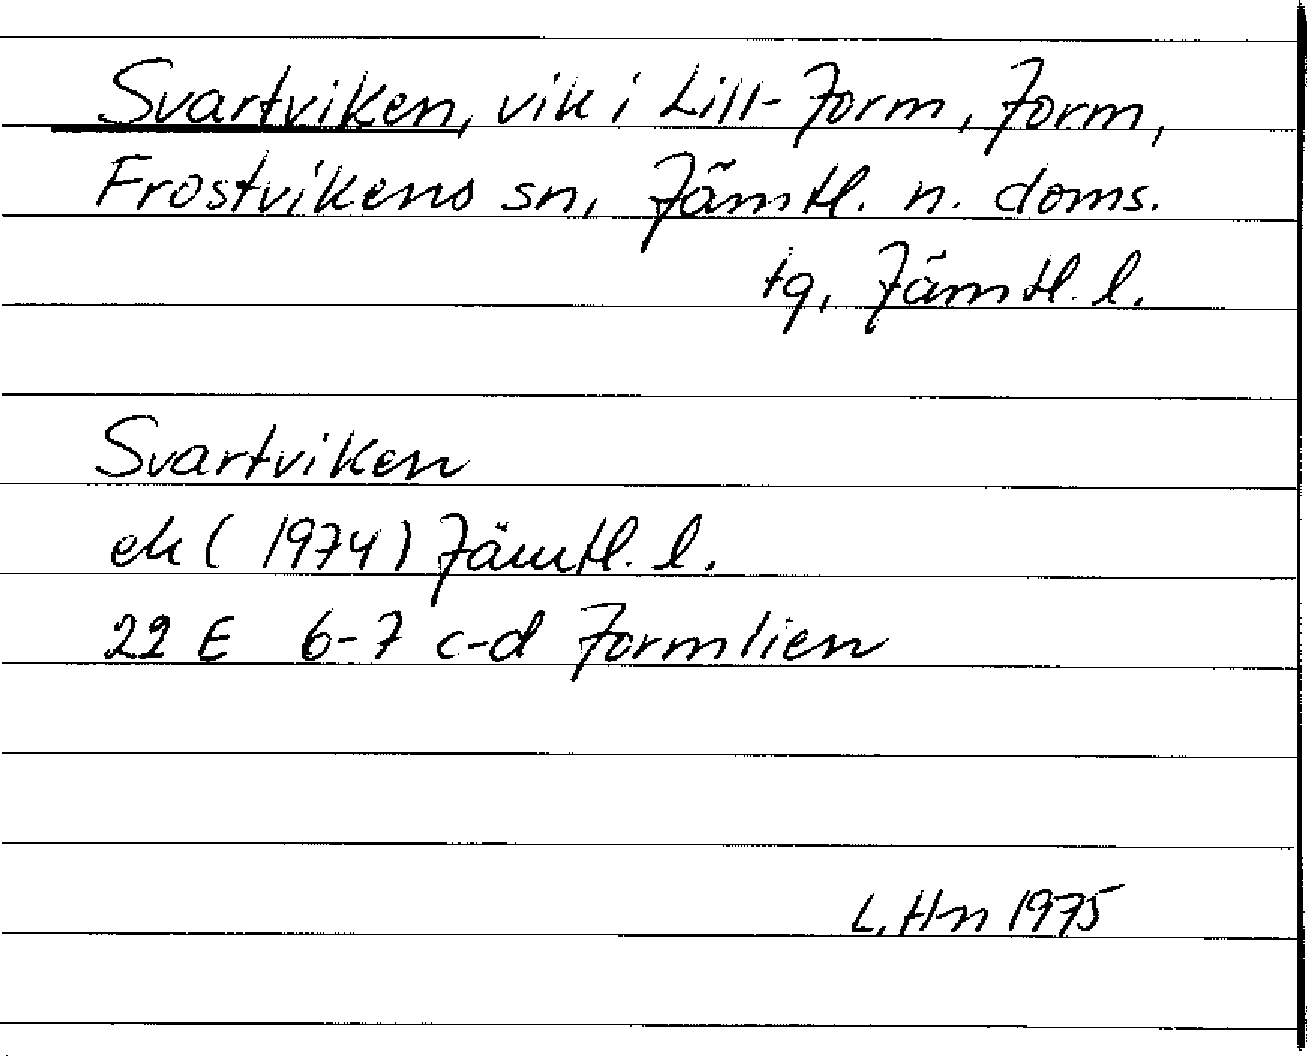 Svartviken, vik i Lill-Jorm, Jorm,
Frostvikens sn, Jämtl. n. doms.
tg, Jämtl. l.
Svartviken
ek (1974) Jämtl. l.
22 E 6-7 c-d Jormlien
L. Hn 1975